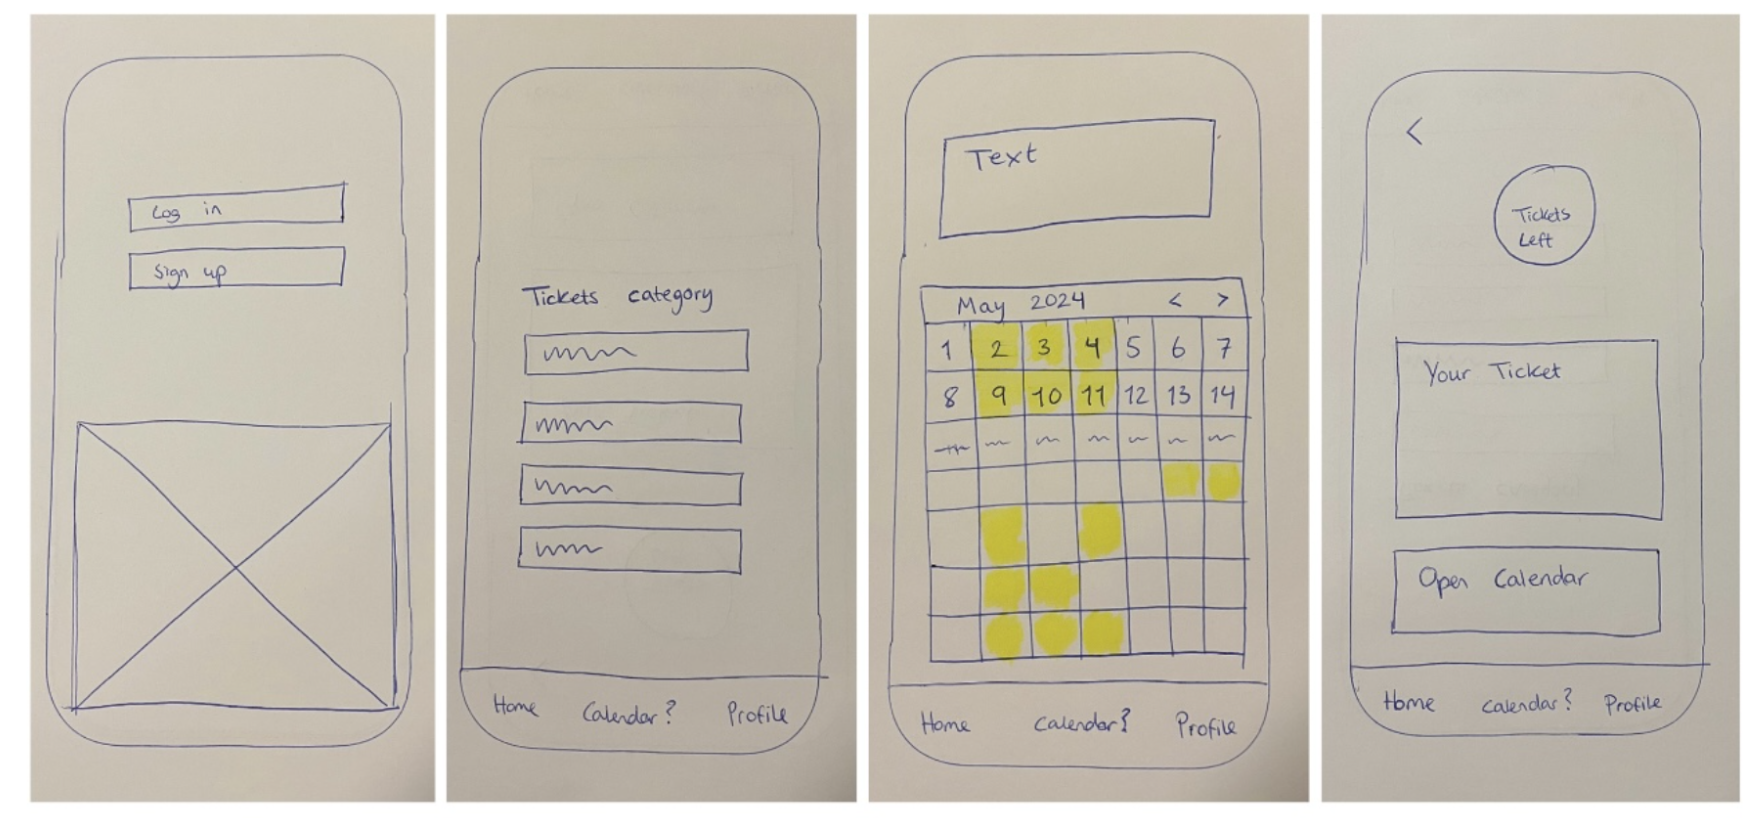 Log in
Sign up
Tickets category
Home Calendar? Profile
Text
May 2024 < >
1 2 3 4 5 6 7
8 9 10 11 12 13 14
Home Calendar? Profile
<
Tickets
Left
Your Ticket
Open Calendar
Home Calendar? Profile